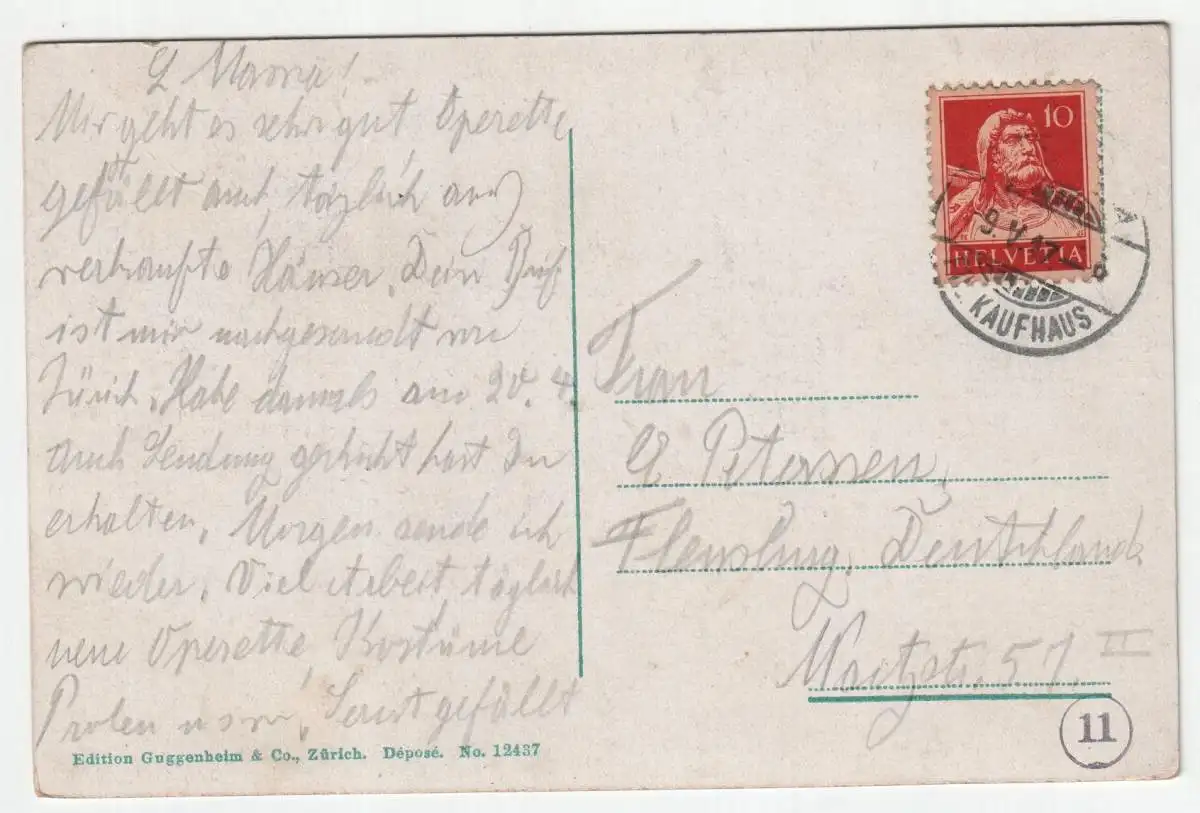 L Mama!
Mir geht es sehr gut Operette
gefällt auch täglich aus
verkaufte Häuser. Dein Brief
ist mir nachgesendet von
Zürich. Habe damals am 20. 4.
auch Sendung geschickt hast Du
erhalten. Morgen sende ich
wieder. Viel Arbeit täglich
neue Operette, Kostüme
Proben usw. Sonst gefällt
Edition Guggenheim & Co., Zürich. Déposé. No. 12437
10
HELVETIA
9.V.17
KAUFHAUS
Frau
Petersen
Flensburg. Deutschland
57 II
11